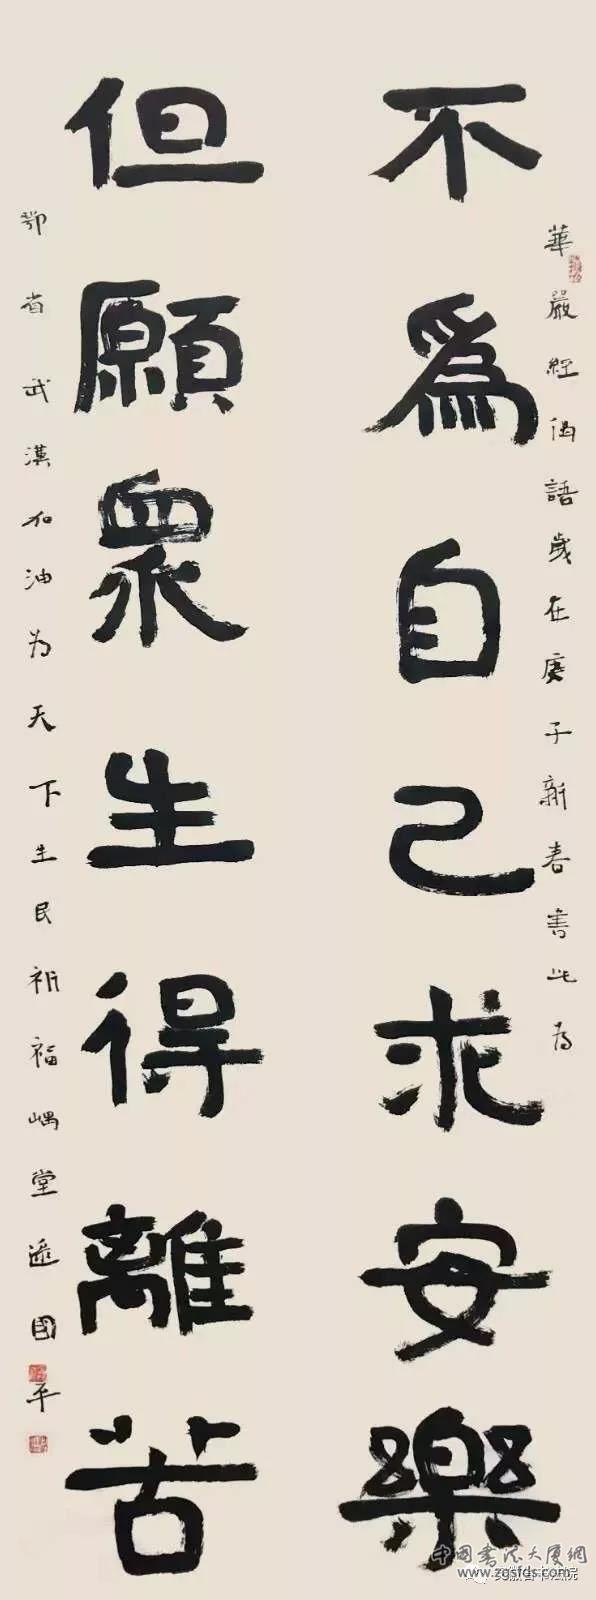 不爲自己求安樂
但願眾生得離苦
華嚴經偈語歲在庚子新春書此为
鄂省武漢加油为天下生民祈福嵎堂逄國平
中国书法大厦網
www.zgsfds.com
安徽省书法院